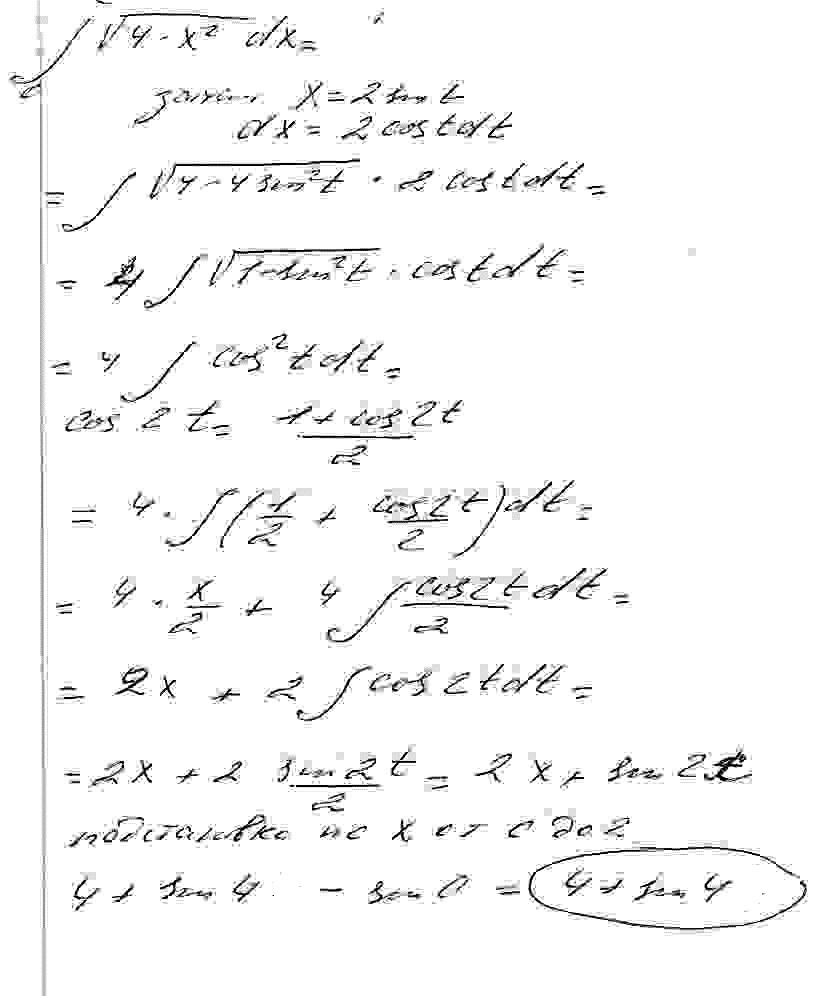 ∫₀ √(4 - x²) dx =
замен. x = 2 sin t
dx = 2 cos t dt
= ∫ √(4 - 4 sin² t) · 2 cos t dt =
= 4 ∫ √(1 - sin² t) · cos t dt =
= 4 ∫ cos² t dt =
cos 2 t = (1 + cos 2t)/2
= 4 · ∫ (1/2 + cos 2t/2) dt =
= 4 · x/2 + 4 ∫ cos 2t/2 dt =
= 2x + 2 ∫ cos 2t dt =
= 2x + 2 sin 2t/2 = 2x + sin 2t
подстановка по x от 0 до 2
4 + sin 4 - sin 0 = 4 + sin 4